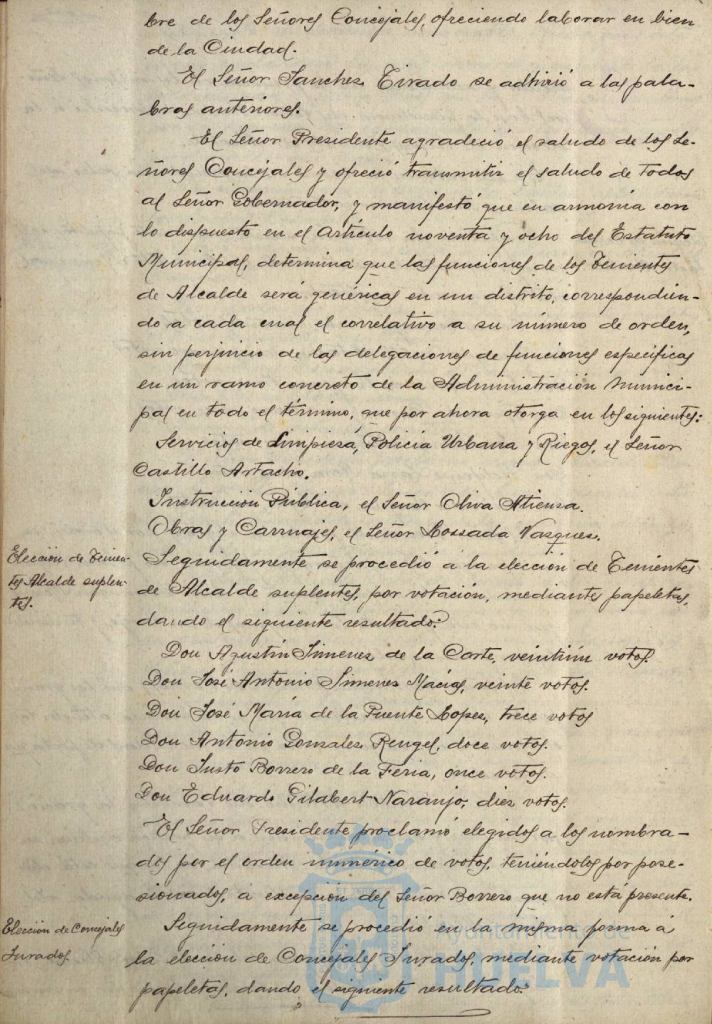 bre de los Señores Concejales, ofreciendo laborar en bien
de la Ciudad.
El Señor Sanchez Tirado se adhirió a las pala-
bras anteriores.
El Señor Presidente agradeció el saludo de los Se-
ñores Concejales y ofreció transmitir el saludo de todos
al Señor Gobernador, y manifestó que en armonía con
lo dispuesto en el artículo noventa y ocho del Estatuto
Municipal, determina que las funciones de los Tenientes
de Alcalde será genéricas en un distrito, correspondién-
do a cada cual el correlativo a su número de orden,
sin perjuicio de las delegaciones de funciones específicas
en un ramo concreto de la Administración Munici-
pal en todo el término, que por ahora otorga en los siguientes:
Servicios de Limpieza, Policía Urbana y Riegos, el Señor
Castillo Artacho.
Instrucción Pública, el Señor Oliva Atienza.
Obras y Carruajes, el Señor Lossada Vasques.
Elección de Tenien-
tes Alcalde suplen-
tes.
Seguidamente se procedió a la elección de Tenientes
de Alcalde suplentes, por votación, mediante papeletas,
dando el siguiente resultado:
Don Agustín Jimenez de la Corte, veintiún votos.
Don José Antonio Jimenes Macías, veinte votos.
Don José María de la Puente Lopez, trece votos
Don Antonio Gonzalez Rengel, doce votos.
Don Justo Borrero de la Feria, once votos.
Don Eduardo Gilabert Naranjo, diez votos.
El Señor Presidente proclamó elegidos a los nombra-
dos por el orden numérico de votos, teniéndolos por pose-
sionados, a excepción del Señor Borrero que no está presente.
Elección de Concejales
Jurados.
Seguidamente se procedió en la misma forma á
la elección de Concejales Jurados, mediante votación por
papeletas, dando el siguiente resultado:
Ayuntamiento de
HUELVA